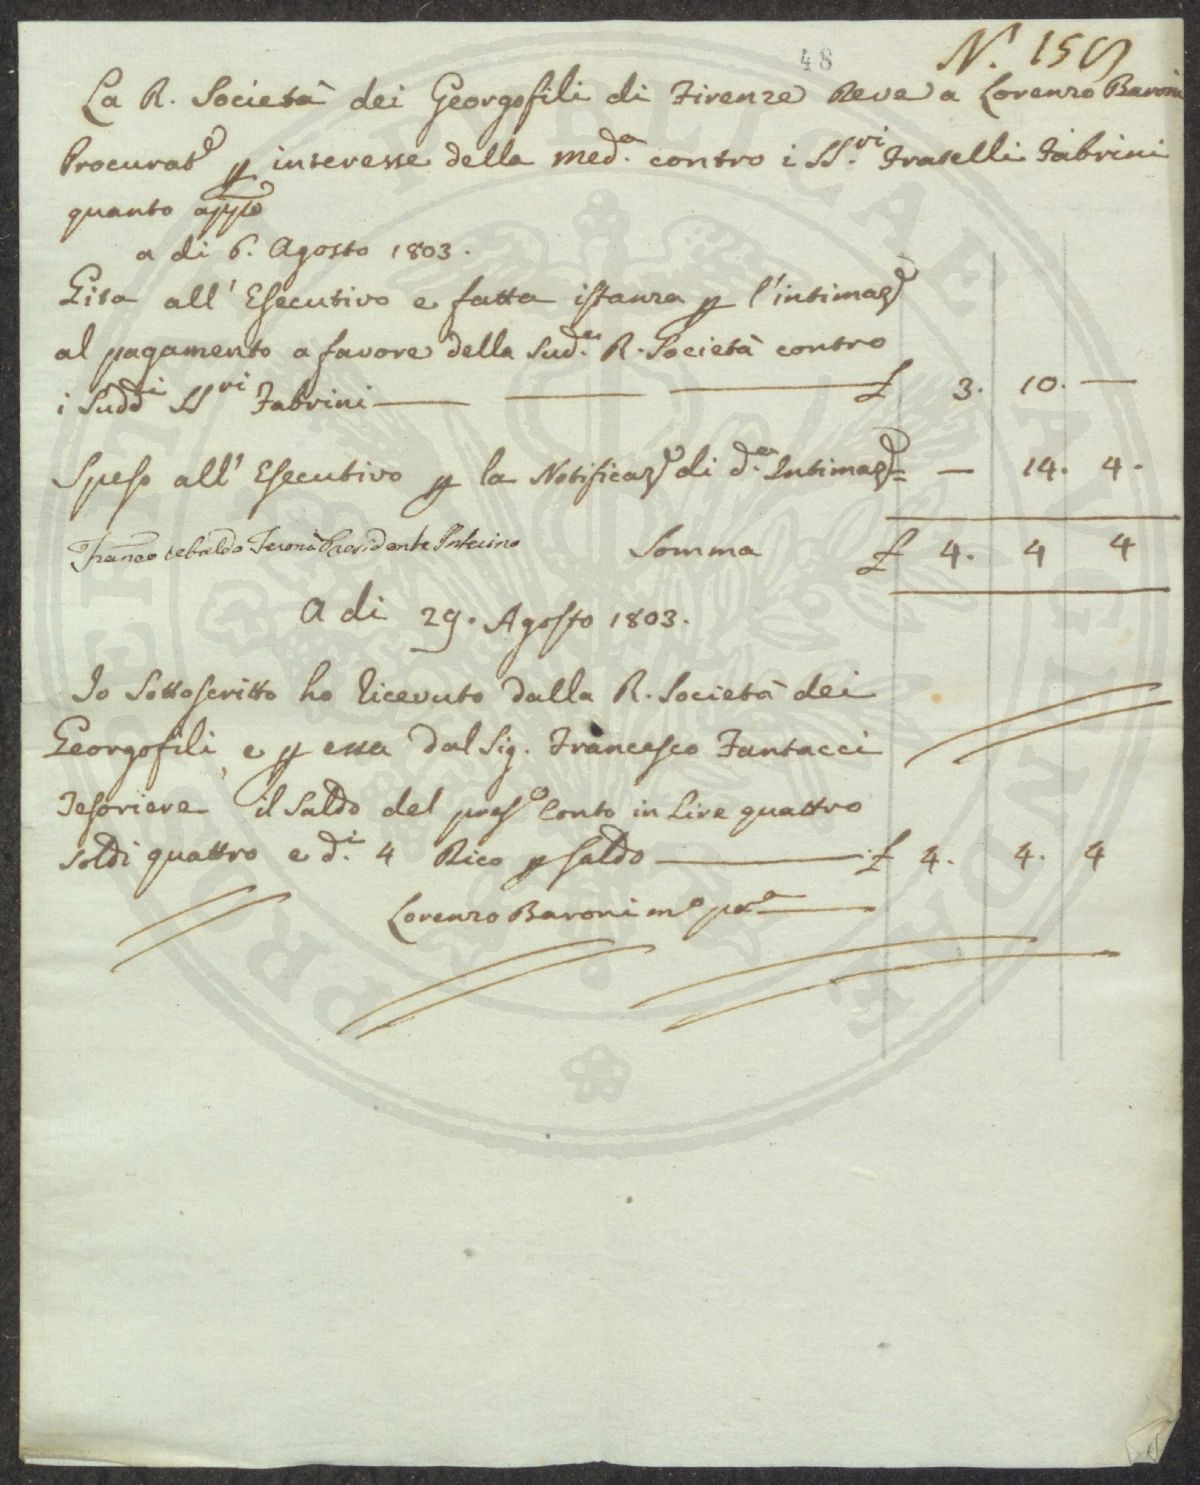 48
N. 15
La R. Società dei Georgofili di Firenze Deve a Lorenzo Baroni
Procurat.e p interesse della med.a contro i SS.ri Fratelli Fabrini
quanto app.o
a di 6. Agosto 1803.
Gita all' Esecutivo e fatta istanza p l'intimaz.e
al pagamento a favore della Sud.a R. Società contro
i Sudd.i SS.ri Fabrini — — — £ 3. 10. —
Speso all' Esecutivo p la Notificaz.e di d.a Intimaz.e = — 14. 4.
Presidente Interino Somma £ 4. 4 4
A di 29. Agosto 1803.
Io Sottoscritto ho ricevuto dalla R. Società dei
Georgofili, e p essa dal Sig. Francesco Fantacci
Tesoriere il Saldo del pres.e Conto in Lire quattro
soldi quattro e d.i 4 Dico p saldo — £ 4. 4. 4
Lorenzo Baroni m.o pp.a